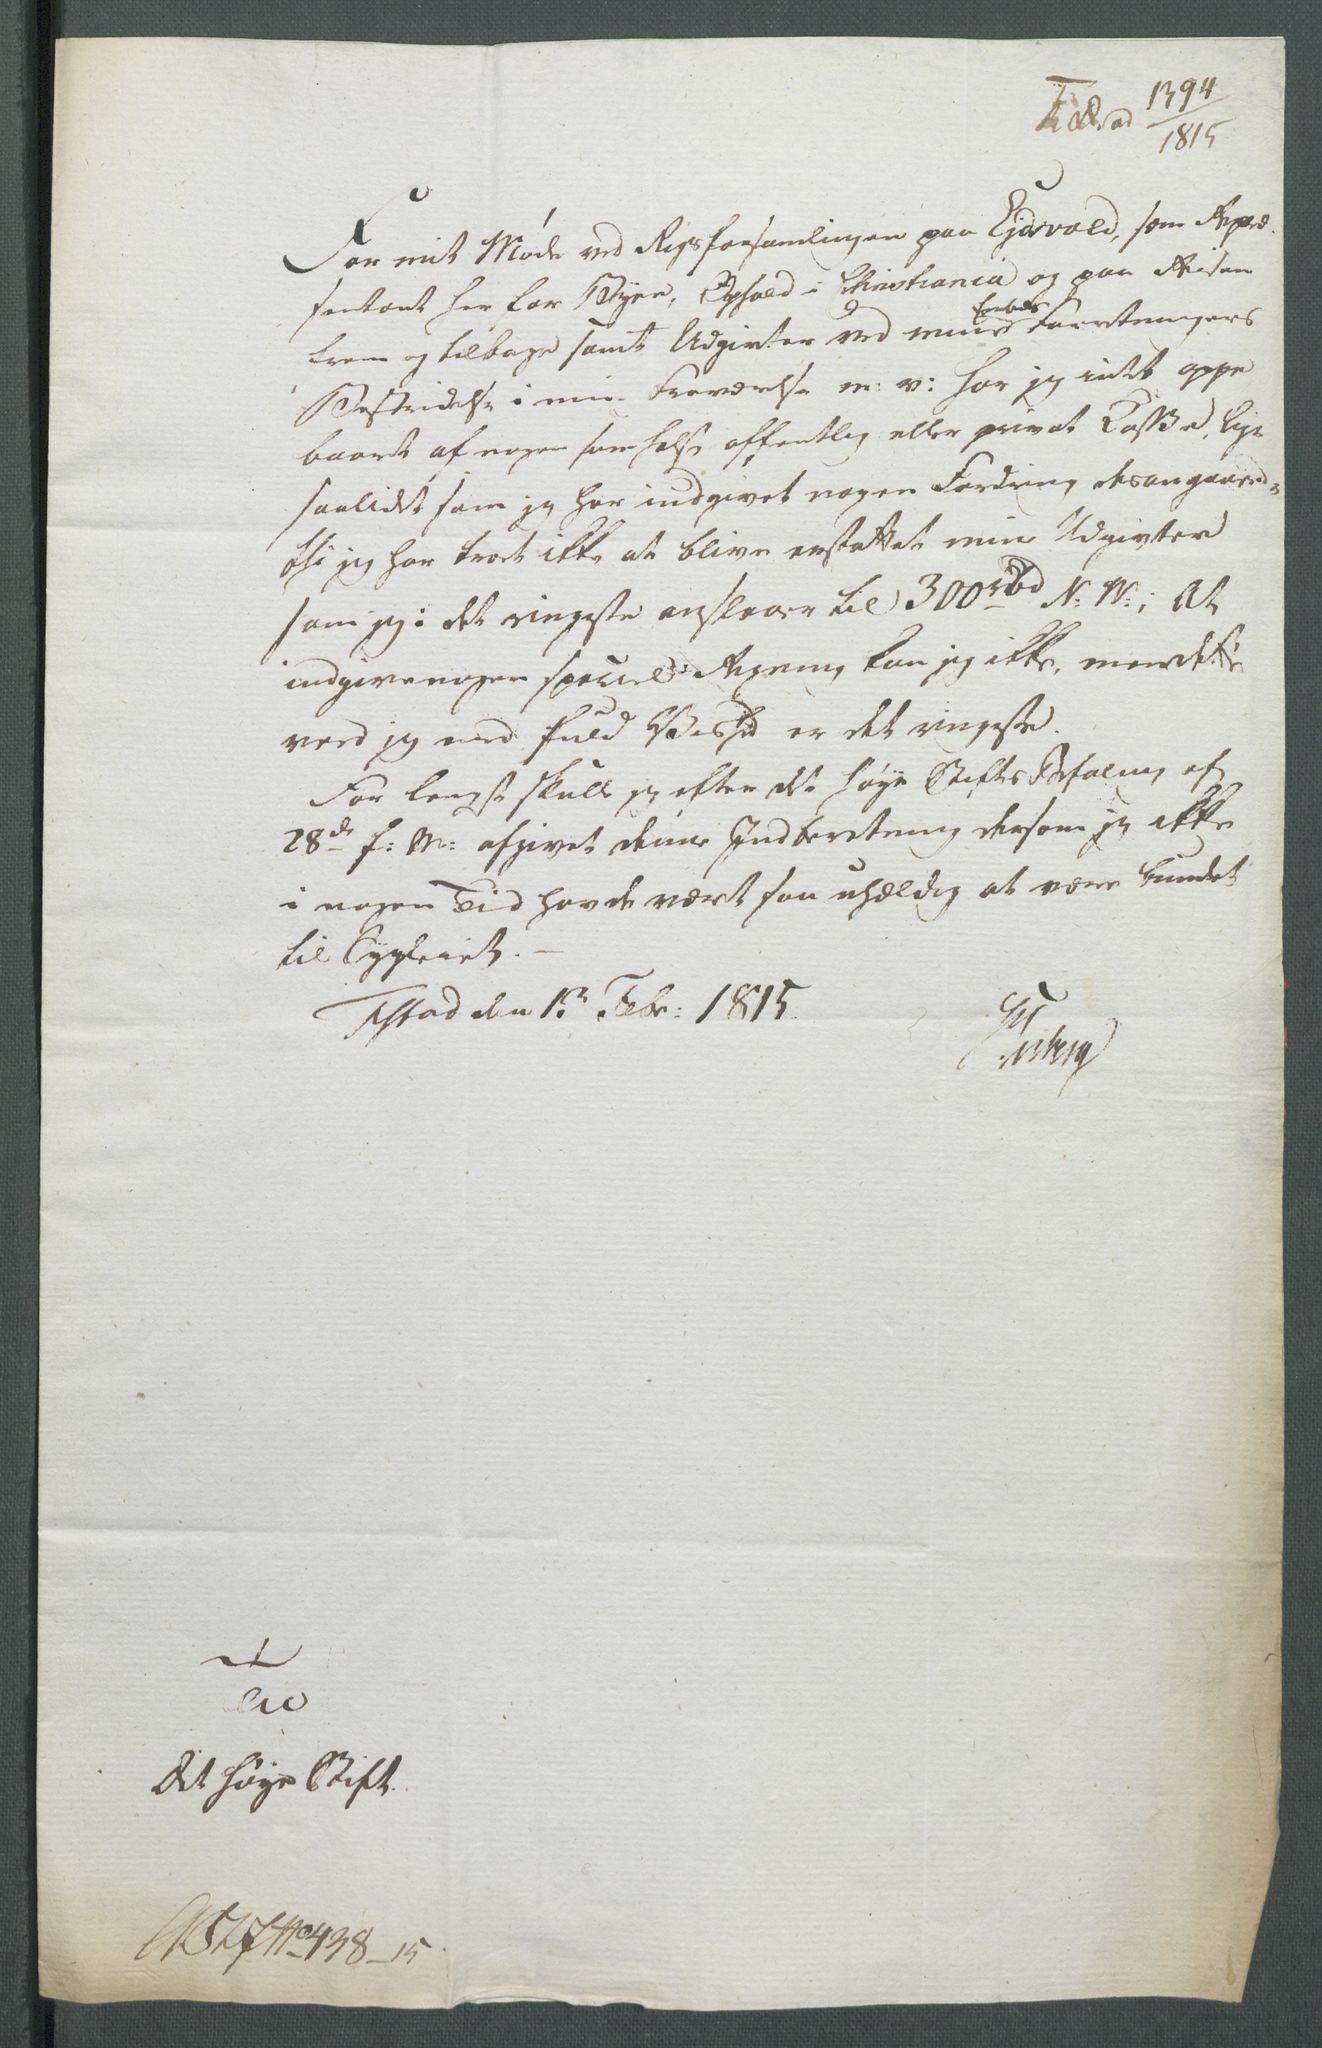 ad 1394
1815
For mit Møde ved Rigsforsamlingen paa Ejdsvold, som Repræ-
sentant her for Byen, Ophold i Christiania og paa Reisen
frem og tilbage samt Udgivter ved mine Embeds Forretningers
Bestridelse i min Fraværelse m: v: har jeg intet oppe
baaret af nogen somhelst offentlig eller privat Casse, lige
saalidet som jeg har indgivet nogen Fordring desangaaende
thi jeg har troet ikke at blive erstattet mine Udgivter
som jeg i det ringeste anslaaer til 300 rbd N: W:; At
indgive nogen speciel Regning kan jeg ikke, men dette
veed jeg med fuld Vished er det ringeste.
For længst skulle jeg efter det høye Stifts Befaling af
28de f: M: afgivet denne Indberetning dersom jeg ikke
i nogen Tid havde vært saa uheldig at være bundet
til Sygeleiet. —
den 13 Febr: 1815.
Til
Det høye Stift.
No 438_15